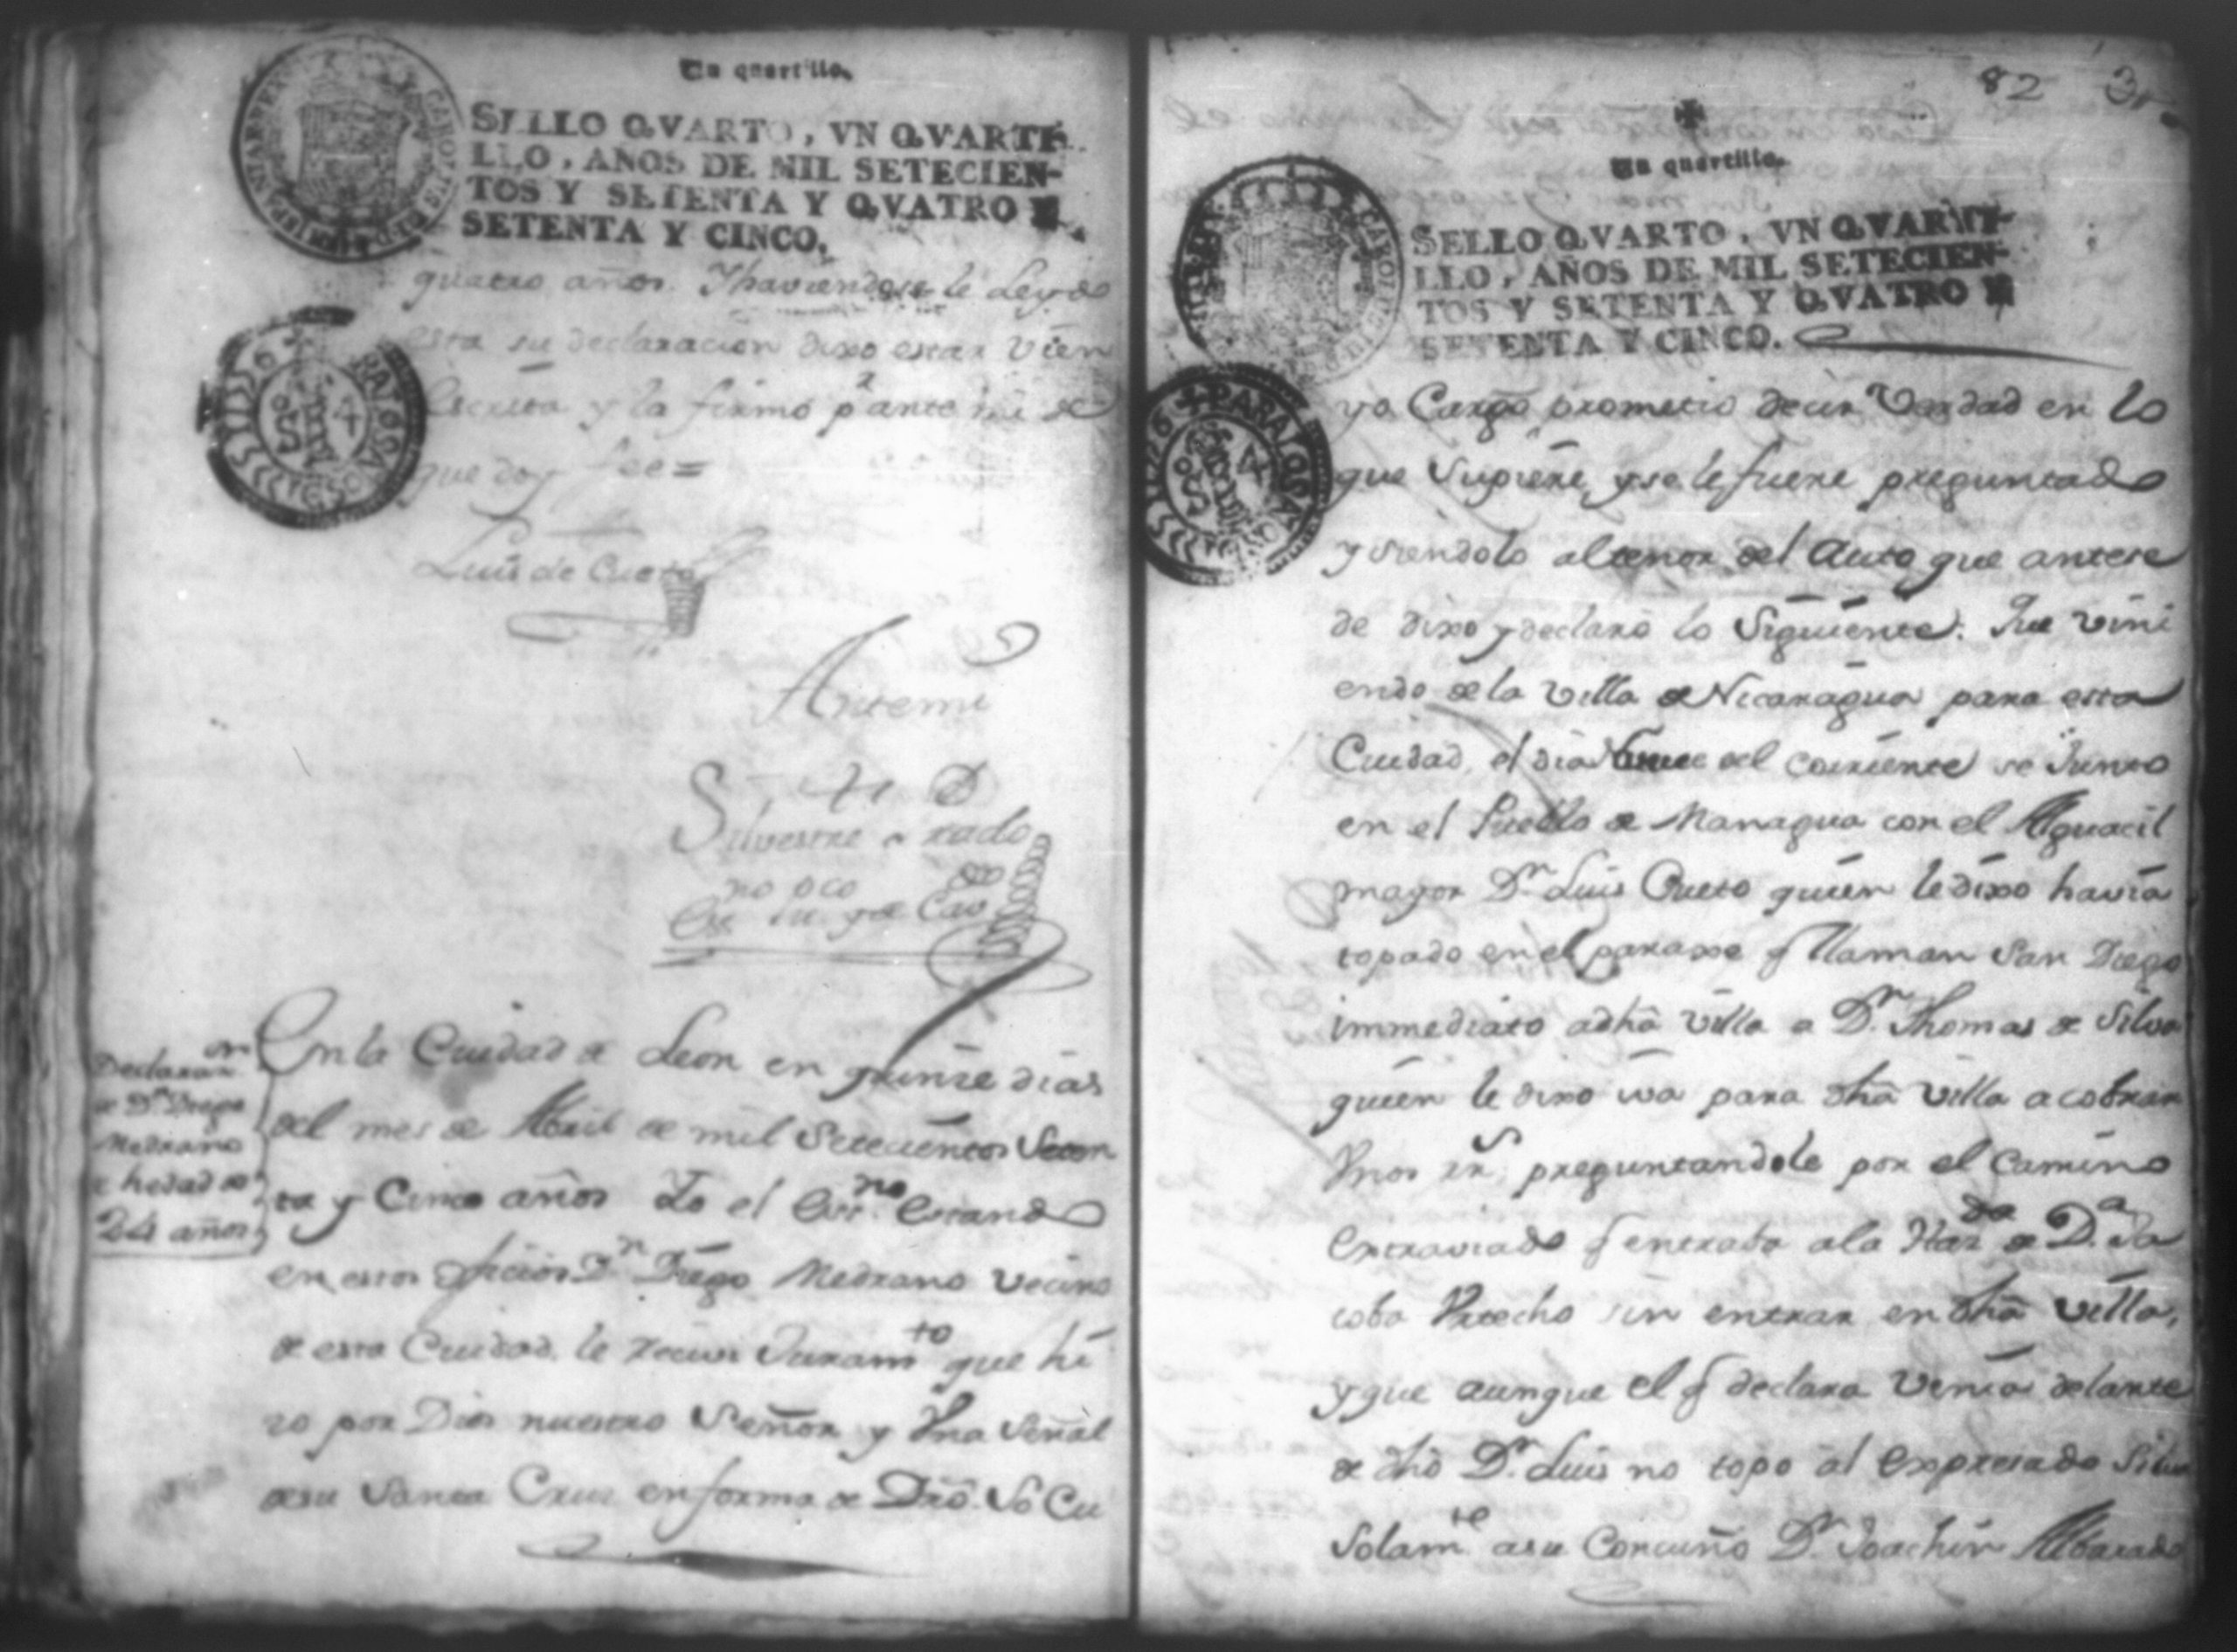 Un quartillo.
SELLO QVARTO, VN QVARTI-
LLO, AÑOS DE MIL SETECIEN-
TOS Y SETENTA Y QVATRO Y
SETENTA Y CINCO.
quatro años. Yhaviendosele Leydo
esta su declaracion dixo estar vien
Escrita y la firmo pr ante mi de
que doy fee =
Luis de Cueto
Antemi
Silvestre
no pco
En la Ciudad de Leon en quinse dias
del mes de Abril de mil Setecientos Seten
ta y Cinco años Yo el Essno Estando
en estos oficios Dn Diego Medrano vecino
de esta Ciudad, le recivi Juramto que hi
zo por Dios nuestro Señor y Vna Señal
de su Santa Cruz en forma de Dro. So Cu
Declaraon
de Dn Diego
Medrano
hedad de
24 años
82
Un quartillo.
SELLO QVARTO, VN QVARTI-
LLO, AÑOS DE MIL SETECIEN-
TOS Y SETENTA Y QVATRO Y
SETENTA Y CINCO.
yo Cargo prometio decir Verdad en lo
que Supiere y se le fuere preguntado
y siendolo altenor del Auto que antese
de dixo y declaro lo Siguiente: Que vini
endo de la villa de Nicaragua para esta
Ciudad, el dia del corriente se Junto
en el Pueblo de Managua con el Alguacil
mayor Dn Luis Cueto quien le dixo havia
topado en el paraxe q llaman San Diego
immediato adha villa a Dn Thomas de Silva
quien le dixo iva para dha villa a cobrar
Vnos rs, preguntandole por el Camino
extraviado q entraba ala Hazda de Da Ja
coba Vrtecho sin entrar en dha villa,
y que aunque el q declara venia delante
de dho Dn Luis no topo al Expresado Silva
Solamte asu Concuño Dn Joachin Albarado